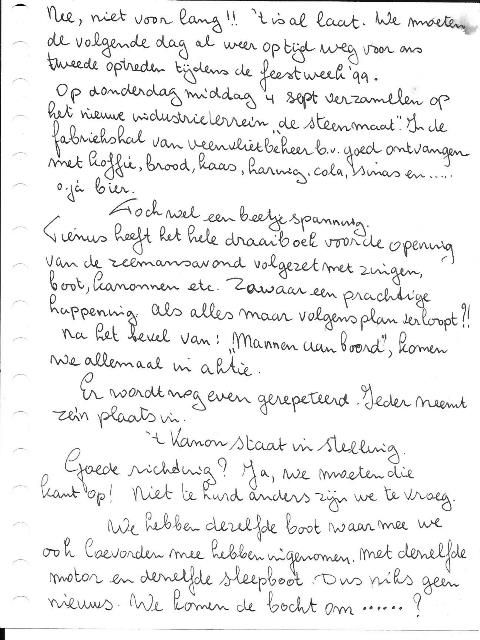 Nee, niet voor lang!! 't is al laat. We moeten
de volgende dag al weer op tijd weg voor ons
tweede optreden tijdens de feestweek '99.
Op donderdag middag 4 sept verzamelen op
het nieuwe industrieterrein "de steenmaat". In de
fabriekshal van veenvliet beheer b.v. goed ontvangen
met koffie, brood, kaas, haring, cola, sinas en .....
o ja bier.
Toch wel een beetje spannnig.
Tienus heeft het hele draaiboek voor de opening
van de zeemansavond volgezet met zingen,
boot, kanonnen etc. Zowaar een prachtige
happening. Als alles maar volgens plan verloopt?!
Na het bevel van: "Mannen aan boord", komen
we allemaal in aktie.
Er wordt nog even gerepeteerd. Ieder neemt
zein plaats in.
't Kanon staat in stelling.
Goede richting? Ja, we moeten die
kant op! Niet te hard anders zijn we te vroeg.
We hebben dezelfde boot waar mee we
ook Coevorden mee hebben ingenomen. Met dezelfde
motor en dezelfde sleepboot. Dus niks geen
nieuws. We komen de bocht om ...... ?